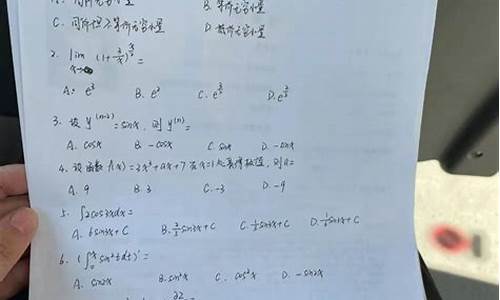 A. 同阶无穷小量 B. 等阶无穷小量
C. 同阶但不等阶无穷小量 D.
2. lim (1+ )
A. B. C. D.
3. 设 y⁽ⁿ⁻²⁾ = sinx, 则 y⁽ⁿ⁾ =
A. cosx B. -cosx C. sinx D. -sinx
4. 设函数 f(x)=2x³+ax+7 在 x=1处取得极值, 则 a=
A. 9 B. 3 C. -3 D. -9
5. ∫2cos3xdx =
A. 6sin3x+C B. 2/3 sin3x+C C. 1/3 sin3x+C D. sin3x+C
6. (∫₀ˣ sin²tdt)' =
A. sin2x B. sin²x C. cos²x D. -sin2x